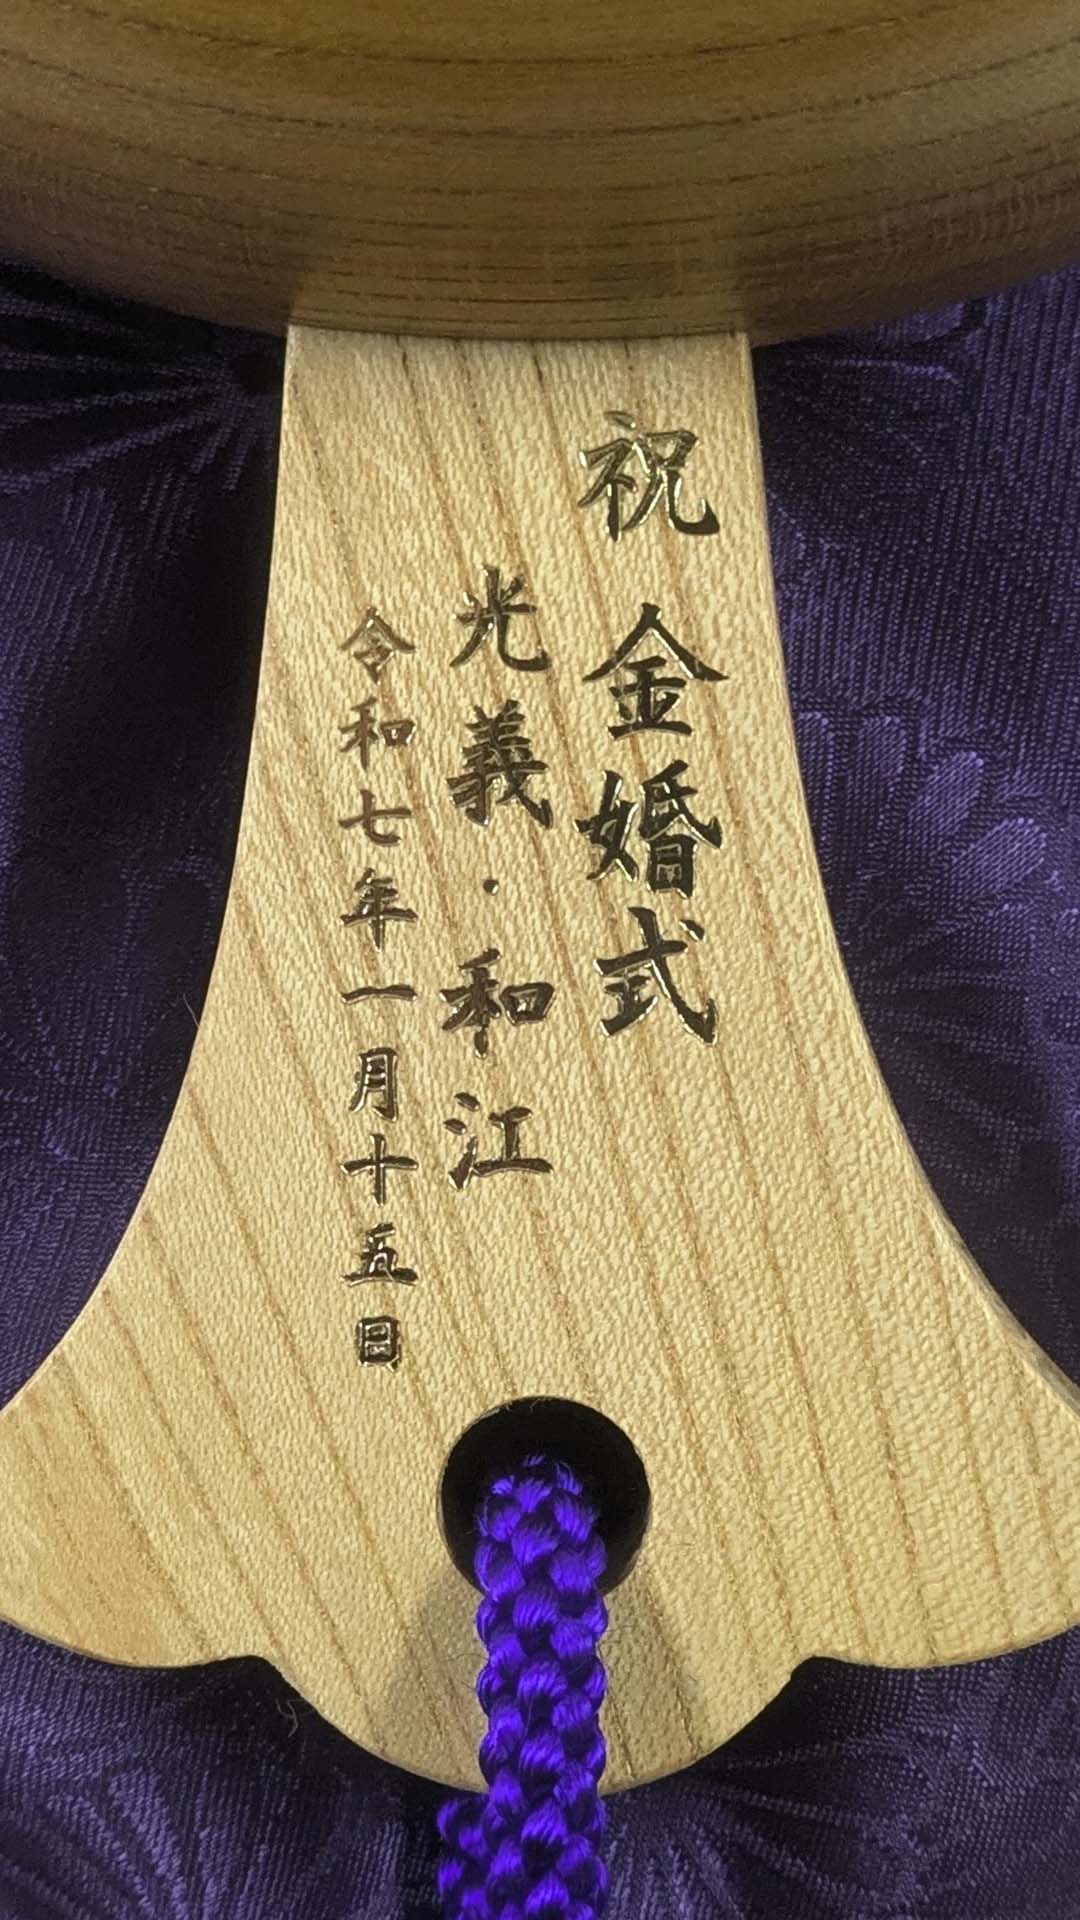 祝 金婚式
光義・和江
令和七年一月十五日